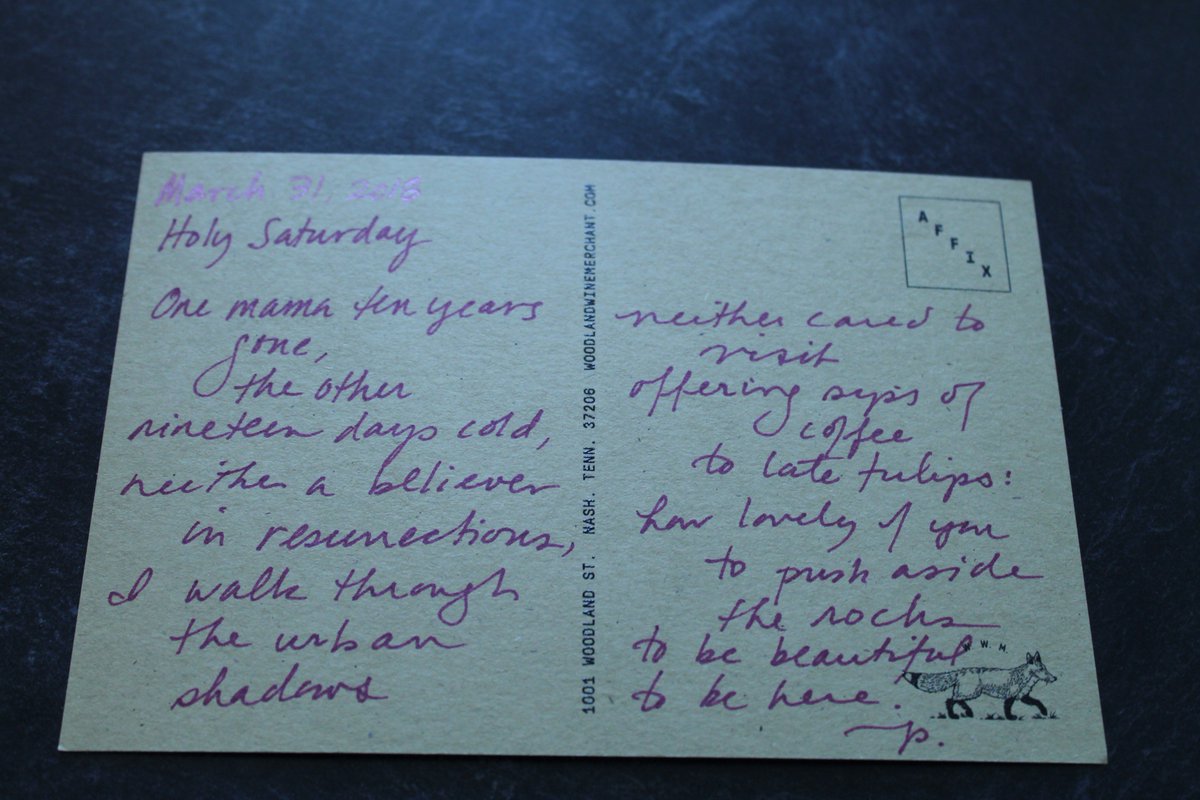 March 31, 2018
Holy Saturday
One mama ten years
gone,
the other
nineteen days cold,
neither a believer
in resurrections,
I walk through
the urban
shadows
1001 WOODLAND ST. NASH. TENN. 37206 WOODLANDWINEMERCHANT.COM
AFFIX
neither cared to
visit
offering sips of
coffee
to late tulips:
how lovely of you
to push aside
the rocks
to be beautiful
W. W. M.
to be here.
—p.